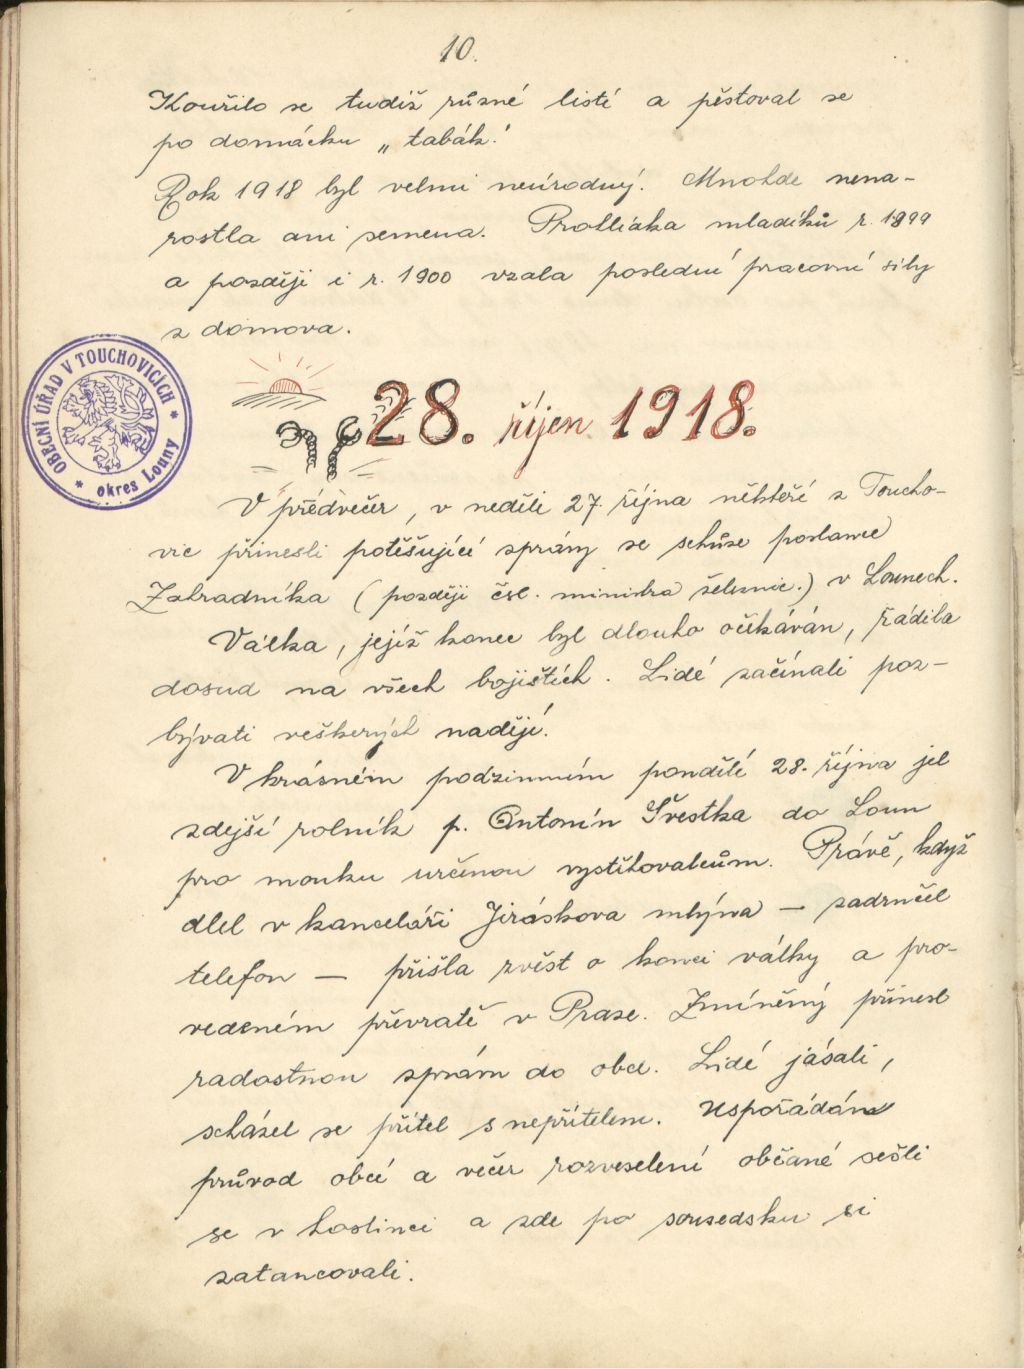 10.
Kouřilo se tudíž různé listí a pěstoval se
po domácku „tabák."
Rok 1918 byl velmi neúrodný. Mnohde nena-
rostla ani semena. Prohlídka mladíků r. 1899
a později i r. 1900 vzala poslední pracovní síly
z domova.
OBECNÍ ÚŘAD V TOUCHOVICÍCH
* okres Louny *
28. říjen 1918.
V předvečer, v neděli 27. října někteří z Toucho-
vic přinesli potěšující zprávy se schůze poslance
Zahradníka (později čsl. ministra železnic.) v Lounech.
Válka, jejíž konec byl dlouho očikáván, řádila
dosud na všech bojištích. Lidé začínali poz-
bývati veškerých nadějí.
V krásném podzimním pondělí 28. října jel
zdejší rolník p. Antonín Švestka do Loun
pro mouku určenou vystěhovalcům. Právě, když
dlel v kanceláři Jiráskova mlýna — zadrnčel
telefon — přišla zvěst o konci války a pro-
vedeném převratě v Praze. Zmíněný přinesl
radostnou zprávu do obce. Lidé jásali,
scházel se přítel s nepřítelem. Uspořádán
průvod obcí a večer rozveselení občané sešli
se v hostinci a zde po sousedsku si
zatancovali.